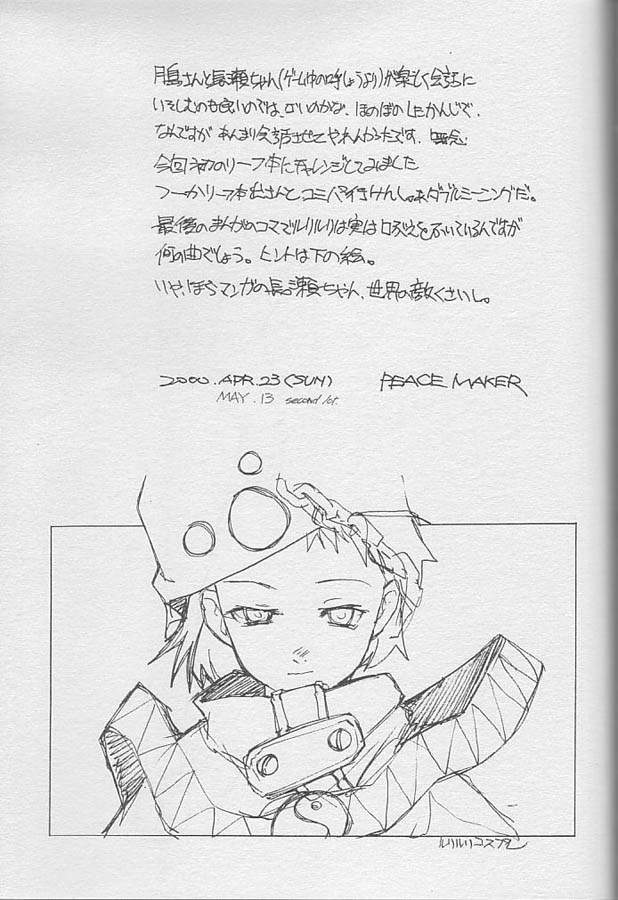 月島さんと長瀬ちゃん(ゲーム中の呼しょうより)が楽しく会話に
いそしむのも良いのでは、ないのかな、ほのぼのしたかんじで。
なんですが あんまり会話させてやれんかったです。無念
今回初のリーフ本にチャレンジしてみました
つーかリーフ本
最後のまんがのコマでルリルリは実は口ぶえを ふいているんですが
何の曲でしょう。ヒントは下の絵。
いや、ほらマンガの長瀬ちゃん、世界の敵くさいし。
2000.APR.23(SUN) PEACE MAKER
MAY.13 second lot.
ルリルリコスプレ